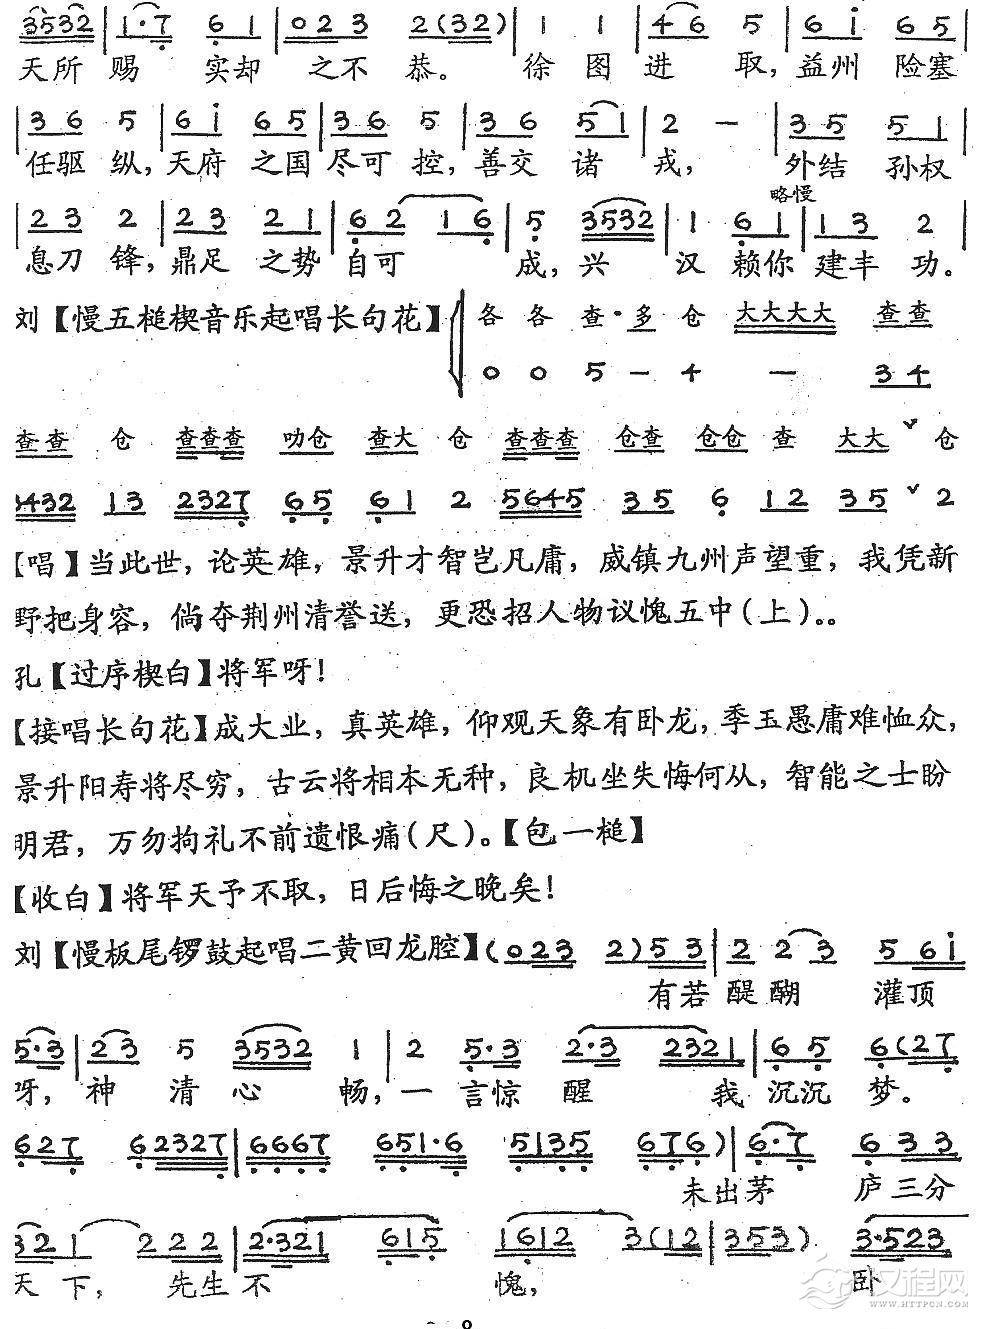 3532 | 1·7 6 1 | 023 2(32) | 1 1 | 46 5 | 6i 65 |
天所 赐 实却 之不 恭。 徐 图 进 取，益州 险塞
| 36 5 | 6i 65 | 36 5 | 36 51 | 2 — | 35 51 |
任驱 纵，天府 之国 尽可 控，善交 诸 戎， 外结 孙权
略慢
| 23 2 | 23 21 | 62 16 | 5 3532 | 1 61 | 13 2 |
息刀 锋，鼎足 之势 自可 成，兴 汉 赖你 建丰 功。
刘【慢五槌楔音乐起唱长句花】 各 各 查·多 仓 大大大大 查查
0 0 5 — 4 — 34
查查 仓 查查查 叻仓 查大 仓 查查查 仓查 仓仓 查 大大 ˇ 仓
3432 13 2327 65 61 2 5645 35 6 12 35 ˇ 2
【唱】当此世，论英雄，景升才智岂凡庸，威镇九州声望重，我凭新
野把身容，倘夺荆州清誉送，更恐招人物议愧五中(上)。。
孔【过序楔白】将军呀！
【接唱长句花】成大业，真英雄，仰观天象有卧龙，季玉愚庸难恤众，
景升阳寿将尽穷，古云将相本无种，良机坐失悔何从，智能之士盼
明君，万勿拘礼不前遗恨痛(尺)。【包一槌】
【收白】将军天予不取，日后悔之晚矣！
刘【慢板尾锣鼓起唱二黄回龙腔】(023 2)53 | 2 23 56i
有若 醍醐 灌顶
5·3 | 23 5 3532 1 | 2 5·3 2·3 2321 | 65 6(27
呀，神 清 心 畅，一 言惊 醒 我 沉沉 梦。
627 62327 | 6667 651·6 5135 676) | 6·7 633
未出茅 庐三分
321 222 | 2·321 615 1612 3(12 | 353) 3·523
天 下， 先生 不 愧， 卧
汉程网
WWW.HTTPCN.COM
8